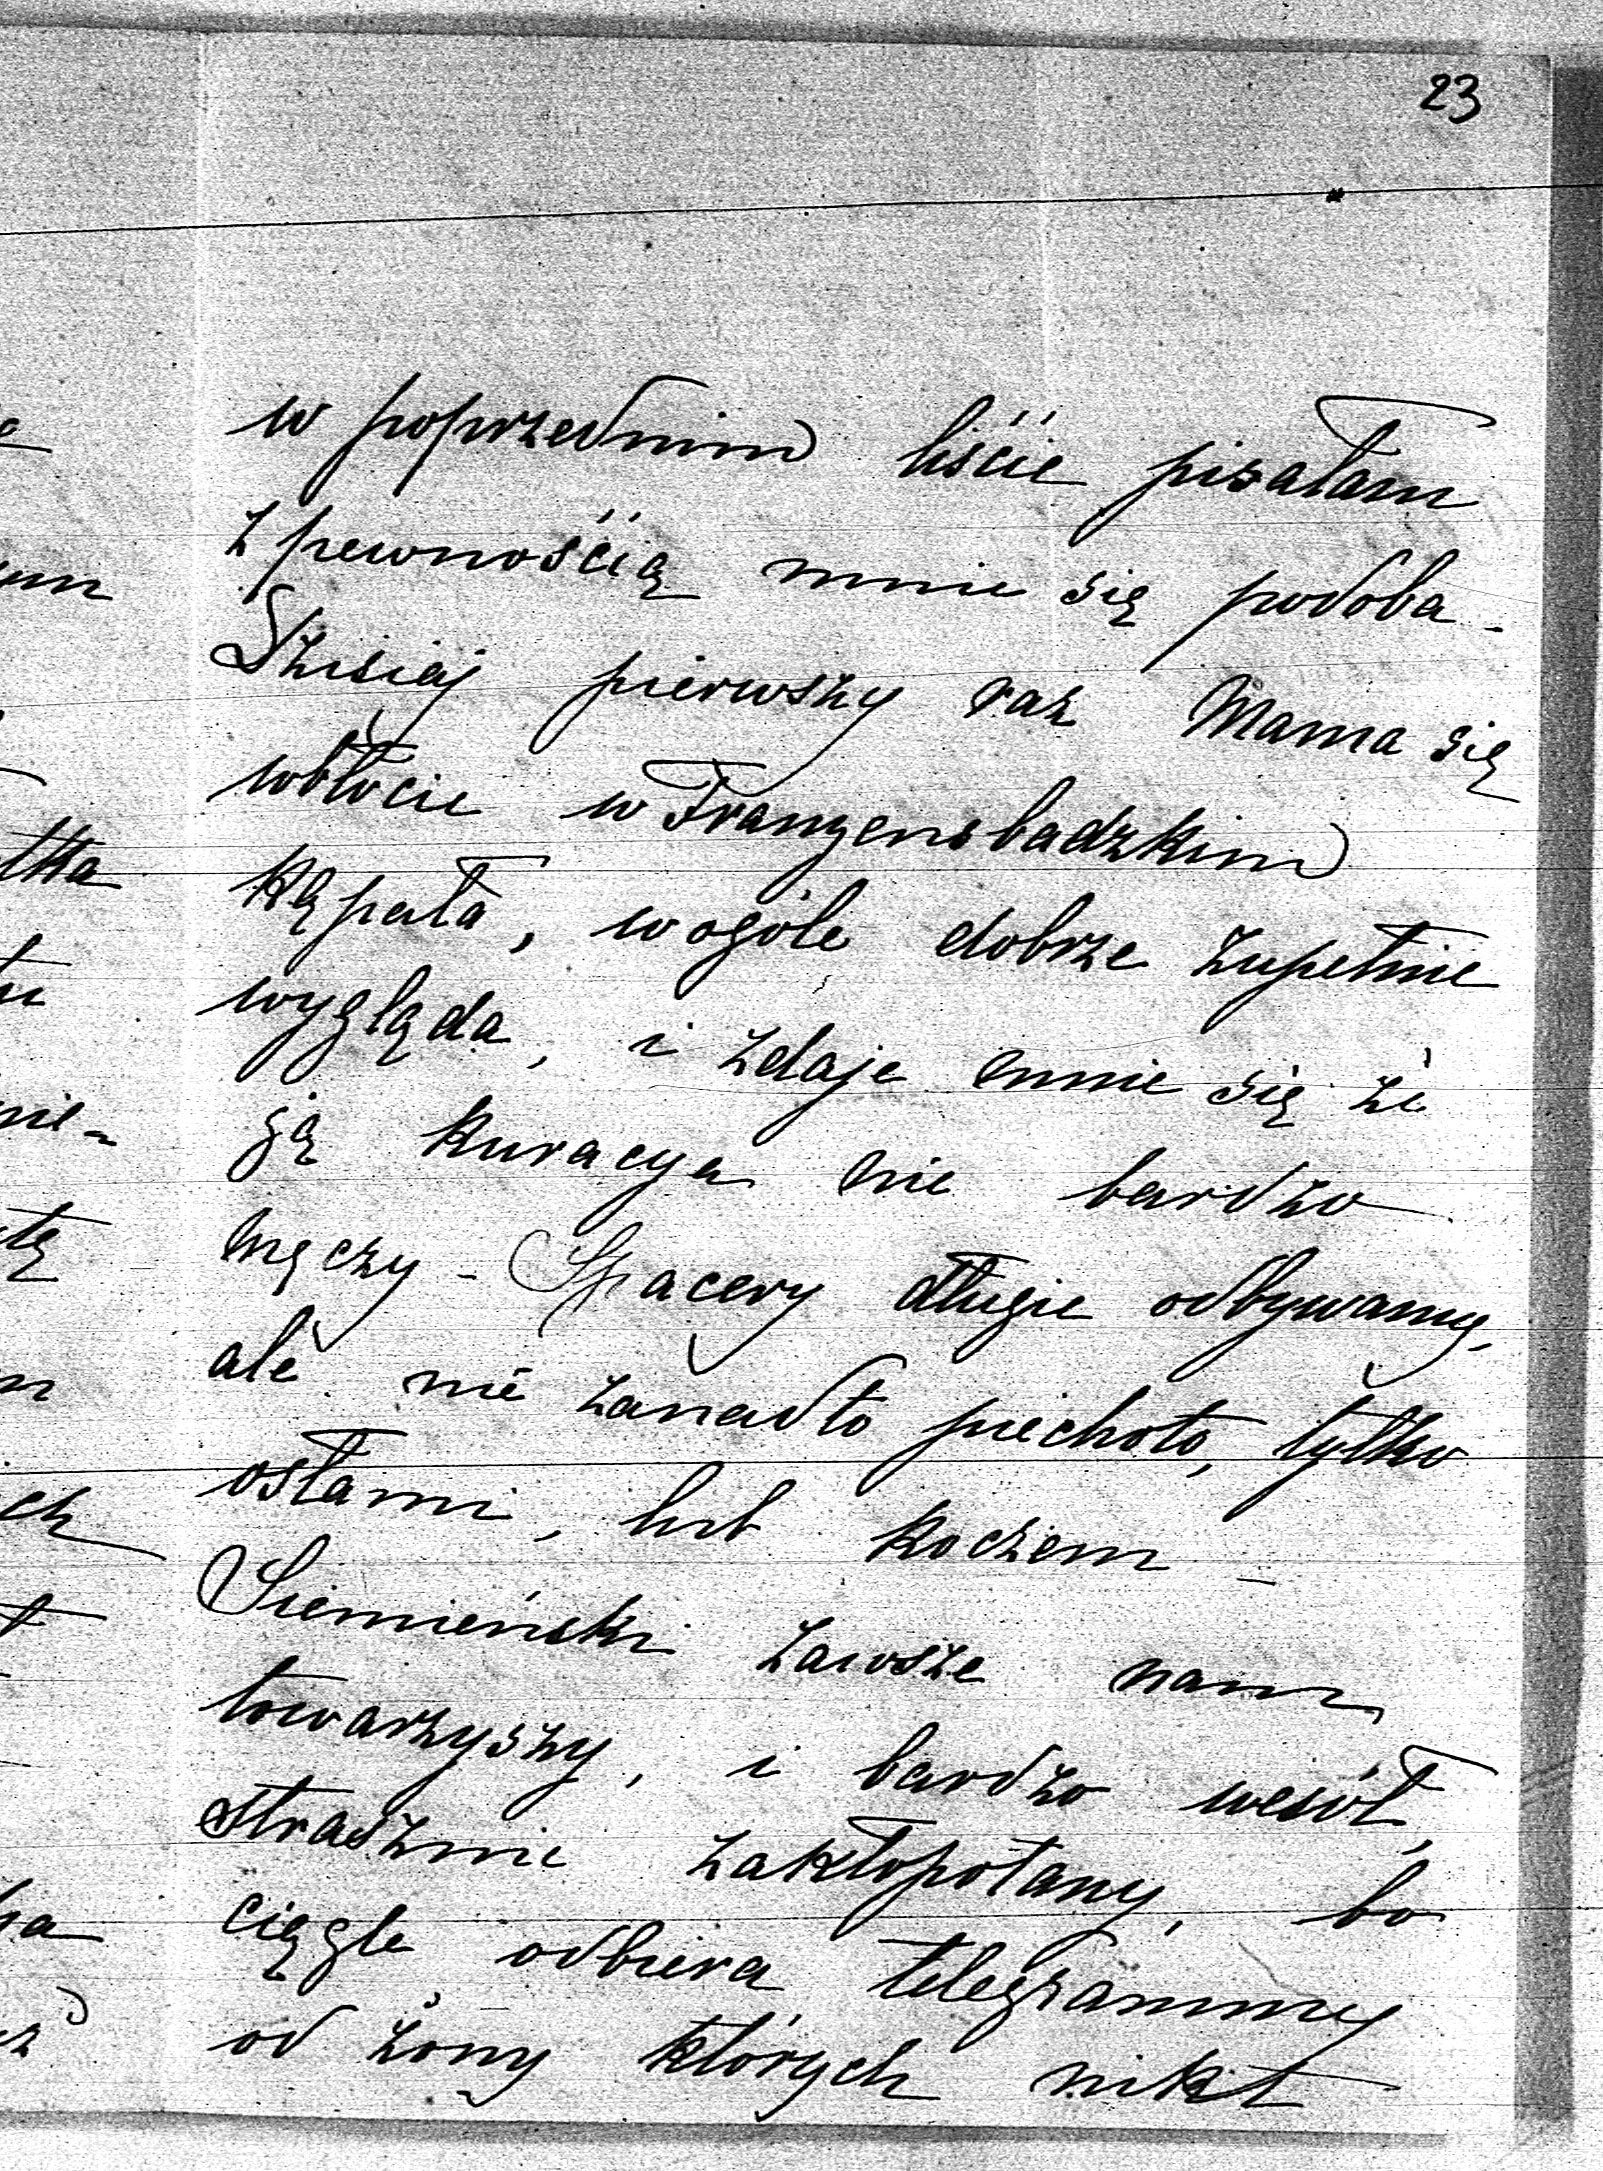 23
w poprzednim liście pisałam
z pewnośćią mnie się podoba -
Dzisiaj pierwszy raz Mama się
wbłocie w Franzensbadzkim
kąpała, wogóle dobrze zupełnie
wygląda, i zdaje mnie się że
ją kuracya nie bardzo
męczy - Spacery długie odbywamy,
ale nie zanadto piechotą, tylko
osłami, lub koczem -
Siemieński zawsze nam
towarzyszy, i bardzo wesół,
strasznie zakłopotany, bo
ciągle odbiera telegrammy
od żony których nikt